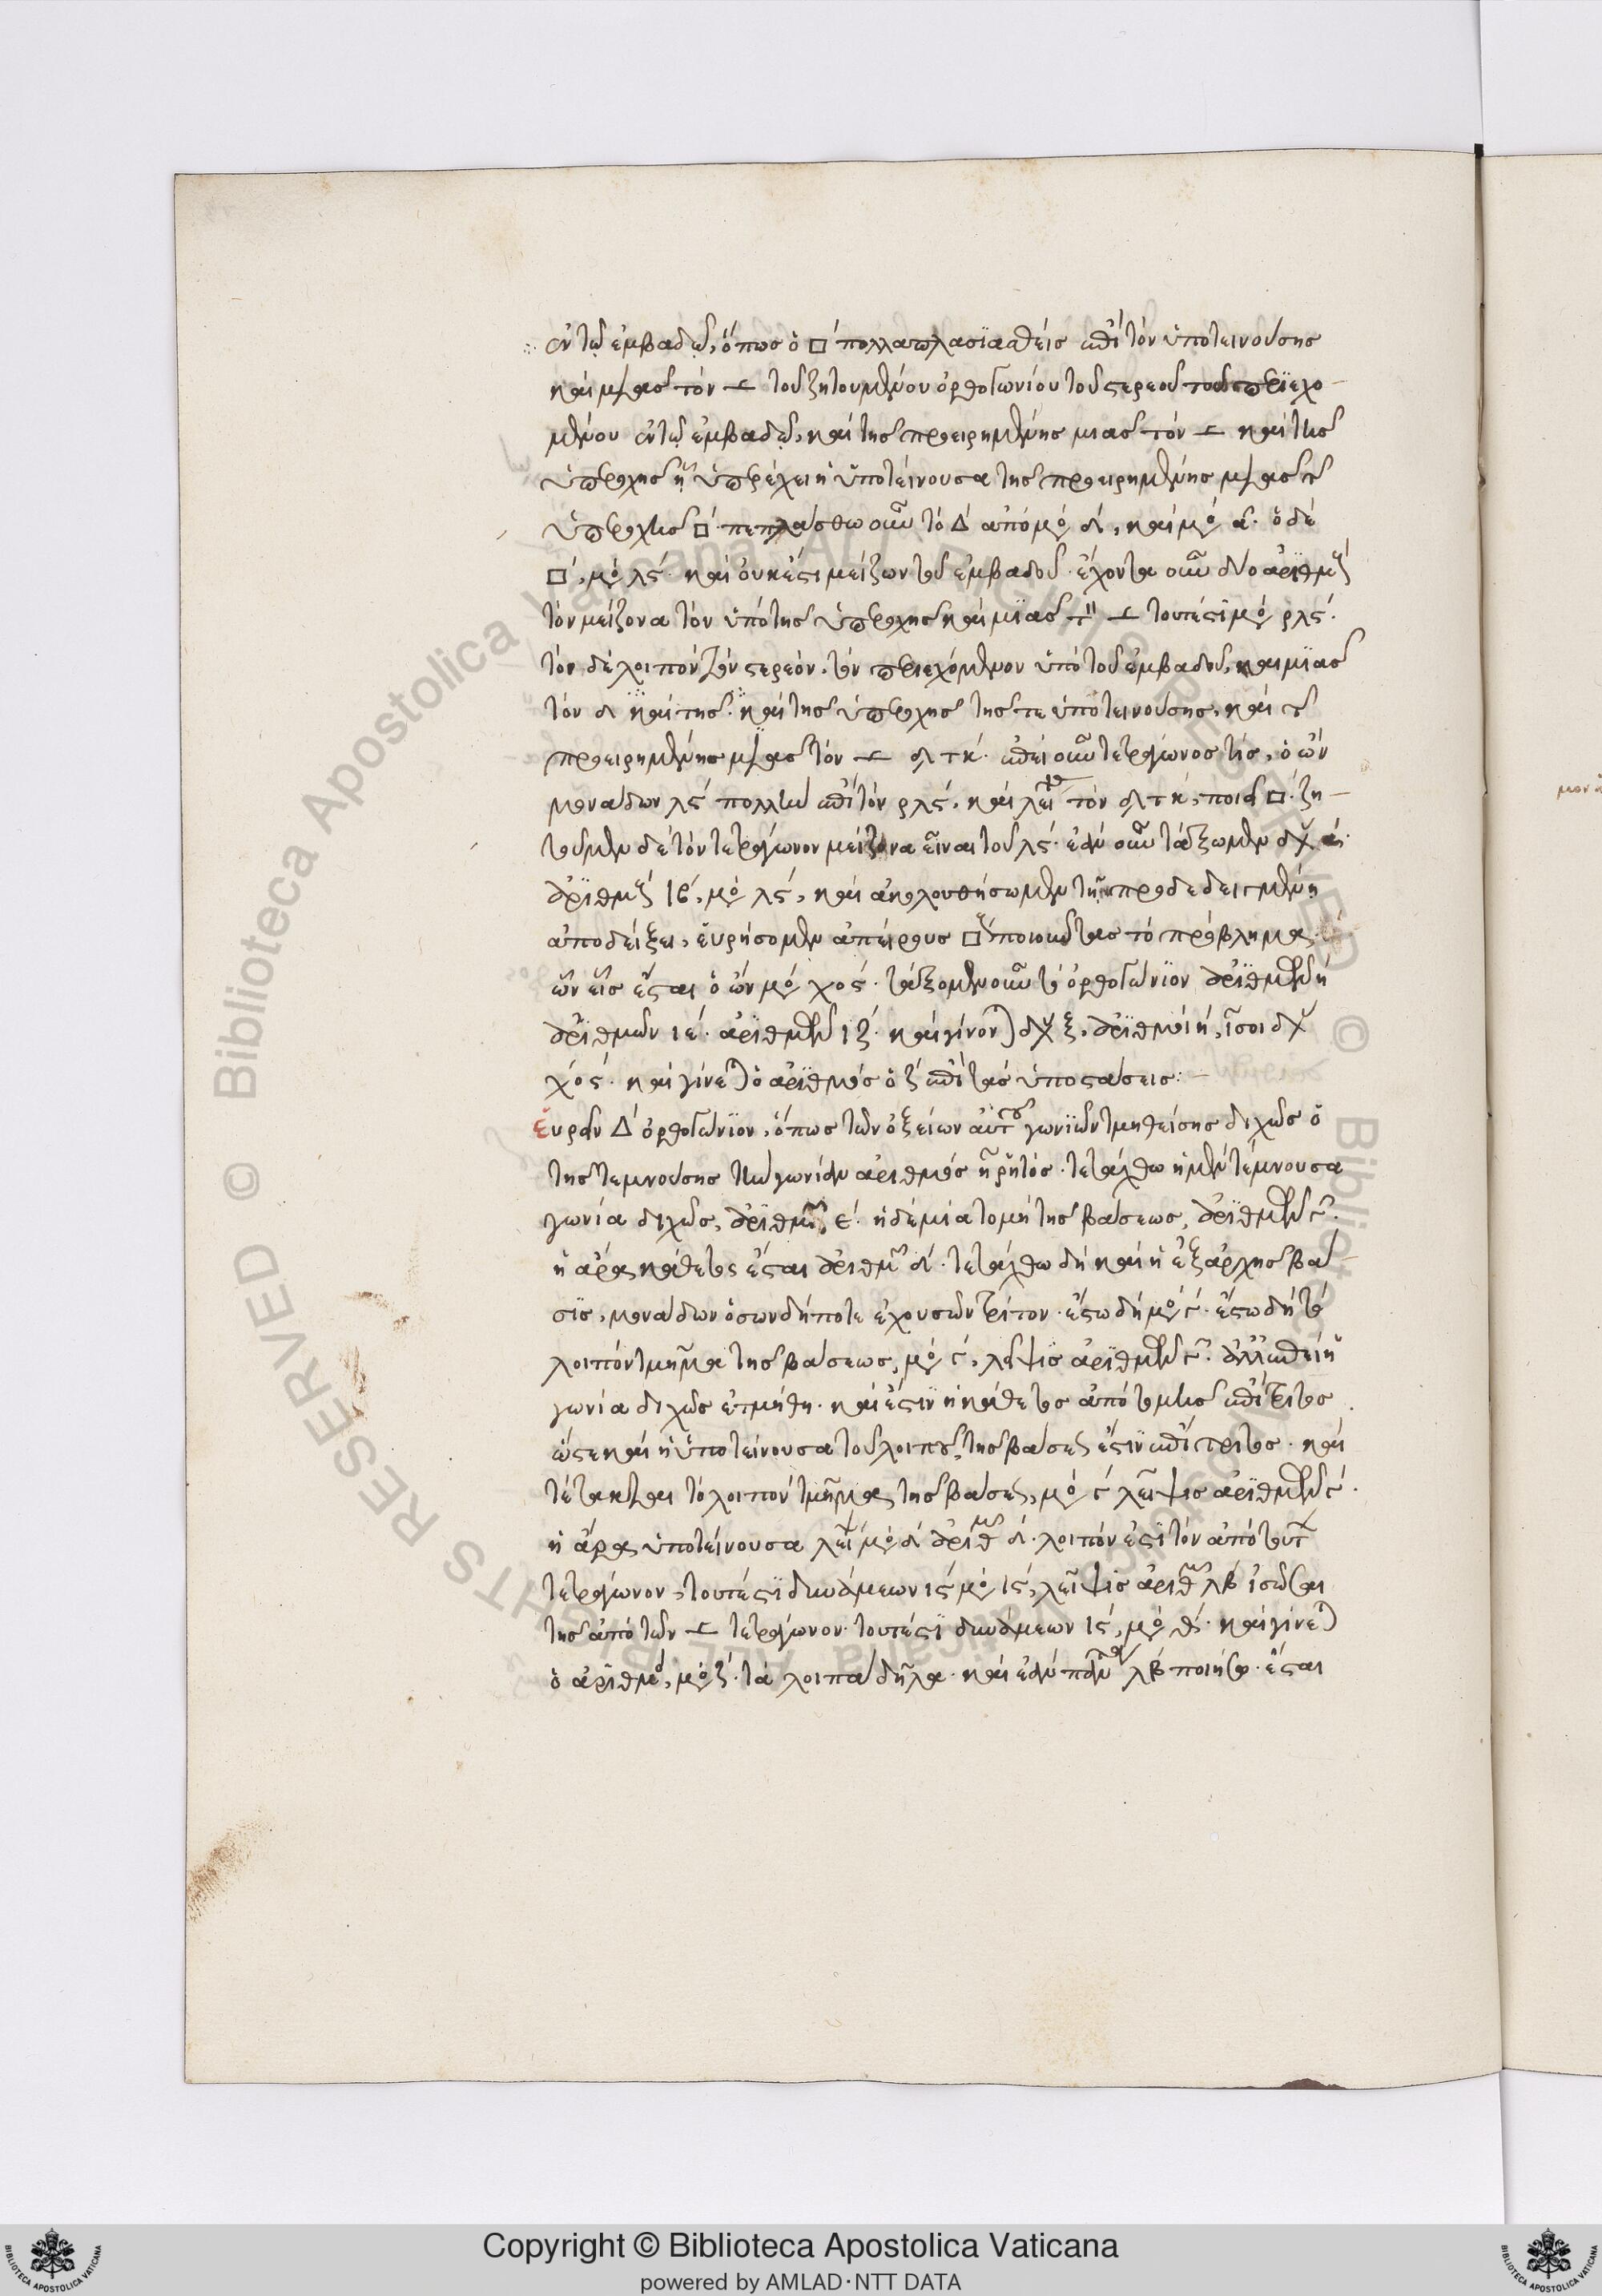 ἐν τῷ ἐμβαδῷ, ὅπως ὁ □ πολλαπλασϊασθεὶς ἐπὶ τὸν ὑποτεινούσης
καὶ μιᾶς τῶν ⊥ τοῦ ζητουμένου ὀρθογωνίου τοῦ στερεοῦ τοῦ περϊεχο
μένου ἐν τῷ ἐμβαδῷ, καὶ τῆς προειρημένης μιᾶς τῶν ⊥ καὶ τῆς
ὑπεροχῆς ᾗ ὑπερέχει ἡ ὑποτείνουσα τῆς προειρημένης μιᾶς
ὑπεροχῆς □. πεπλάσθω οὖν τὸ Δ ἀπὸ μο δ, καὶ μο α. ὁ δὲ
□, μο λς. καὶ οὐκ ἔστι μείζων τοῦ ἐμβαδοῦ. ἔχοντα οὖν δύο ἀριθμ
τὸν μείζονα τὸν ὑπὸ τῆς ὑπεροχῆς καὶ μϊᾶς τ ⊥ τουτέστι μο ρλς.
τὸν δὲ λοιπὸν τὸν στερεὸν, τὸν περιεχόμενον ὑπὸ τοῦ ἐμβαδοῦ, καὶ μϊᾶς
τῶν δ καὶ τῆς. καὶ τῆς ὑπεροχῆς τῆς τε ὑποτεινούσης, καὶ
προειρημένης μιᾶς τῶν ⊥ δτκ. ἐπεὶ οὖν τετράγωνος τίς, ὁ ὢν
μονάδων λς πολλ ἐπὶ τὸν ρλς, καὶ λει τὸν δτκ, ποιεῖ □. ζη
τοῦμεν δὲ τὸν τετράγωνον μείζονα εἶναι τοῦ λς. ἐὰν οὖν τάξωμεν δυ α.
ἀριθμ ιβ, μο λς, καὶ ἀκολουθήσωμεν τῇ προδεδειγμένῃ
ἀποδείξει, εὑρήσομεν ἀπείρους □ ποιοῦντας τὸ πρόβλημα.
ὧν εἷς ἔσται ὁ ὢν μο χος. τάξομεν οὖν τὸ ὀρθογώνϊον ἀριθμῶν η
ἀριθμῶν ιε. ἀριθμῶν ιζ. καὶ γίνον δυ ξ, ἀριθμοὶ η, ἴσοι δυ
χος. καὶ γίνε ὁ ἀριθμὸς ὁ ζ ἐπὶ τὰς ὑποστάσεις:
Εὑρεῖν Δ ὀρθογώνϊον, ὅπως τῶν ὀξείων αὐτ γωνϊῶν τμηθείσης δίχως ὁ
τῆς τεμνούσης τὴν γωνίαν ἀριθμὸς ᾖ ῥητός. τετάχθω ἡ μὲν τέμνουσα
γωνία δίχως, ἀριθμ ε. ἡ δὲ μία τομὴ τῆς βάσεως, ἀριθμῶν γ.
ἡ ἄρα κάθετος ἔσται ἀριθμ δ. τετάχθω δὴ καὶ ἡ ἐξ ἀρχῆς βά
σϊς, μονάδων ὁσωνδήποτε ἐχουσῶν τρίτον. ἔστω δὴ μο γ. ἔστω δὴ τὸ
λοιπὸν τμῆμα τῆς βάσεως, μο γ, λεῖψις ἀριθμῶν γ. ἀλλ' ἐπεὶ ἡ
γωνία δίχως ἐτμήθη. καὶ ἔστιν ἡ κάθετος ἀπότομῆς ἐπίτριτος
ὥστε καὶ ἡ ὑποτείνουσα τοῦ λοιποῦ, τῆς βάσεως ἐστὶν ἐπίτριτος. καὶ
τέτακται τὸ λοιπὸν τμῆμα τῆς βάσεως, μο γ λεῖψις ἀριθμῶν γ.
ἡ ἄρα ὑποτείνουσα λει μο δ ἀριθμ δ. λοιπὸν ἐστὶ τὸν ἀπὸ τουτ
τετράγωνον, τουτέστι δυνάμεων ις μο ις, λεῖψις ἀριθμ λβ ἰσῶσαι
τῆς ἀπὸ τῶν ⊥ τετράγωνον. τουτέστι δυνάμεων ις, μο θ. καὶ γίνε
ὁ ἀριθμὸ, μο ζ. τὰ λοιπὰ δῆλα. καὶ ἐὰν πάν λβ ποιήσω. ἔσται